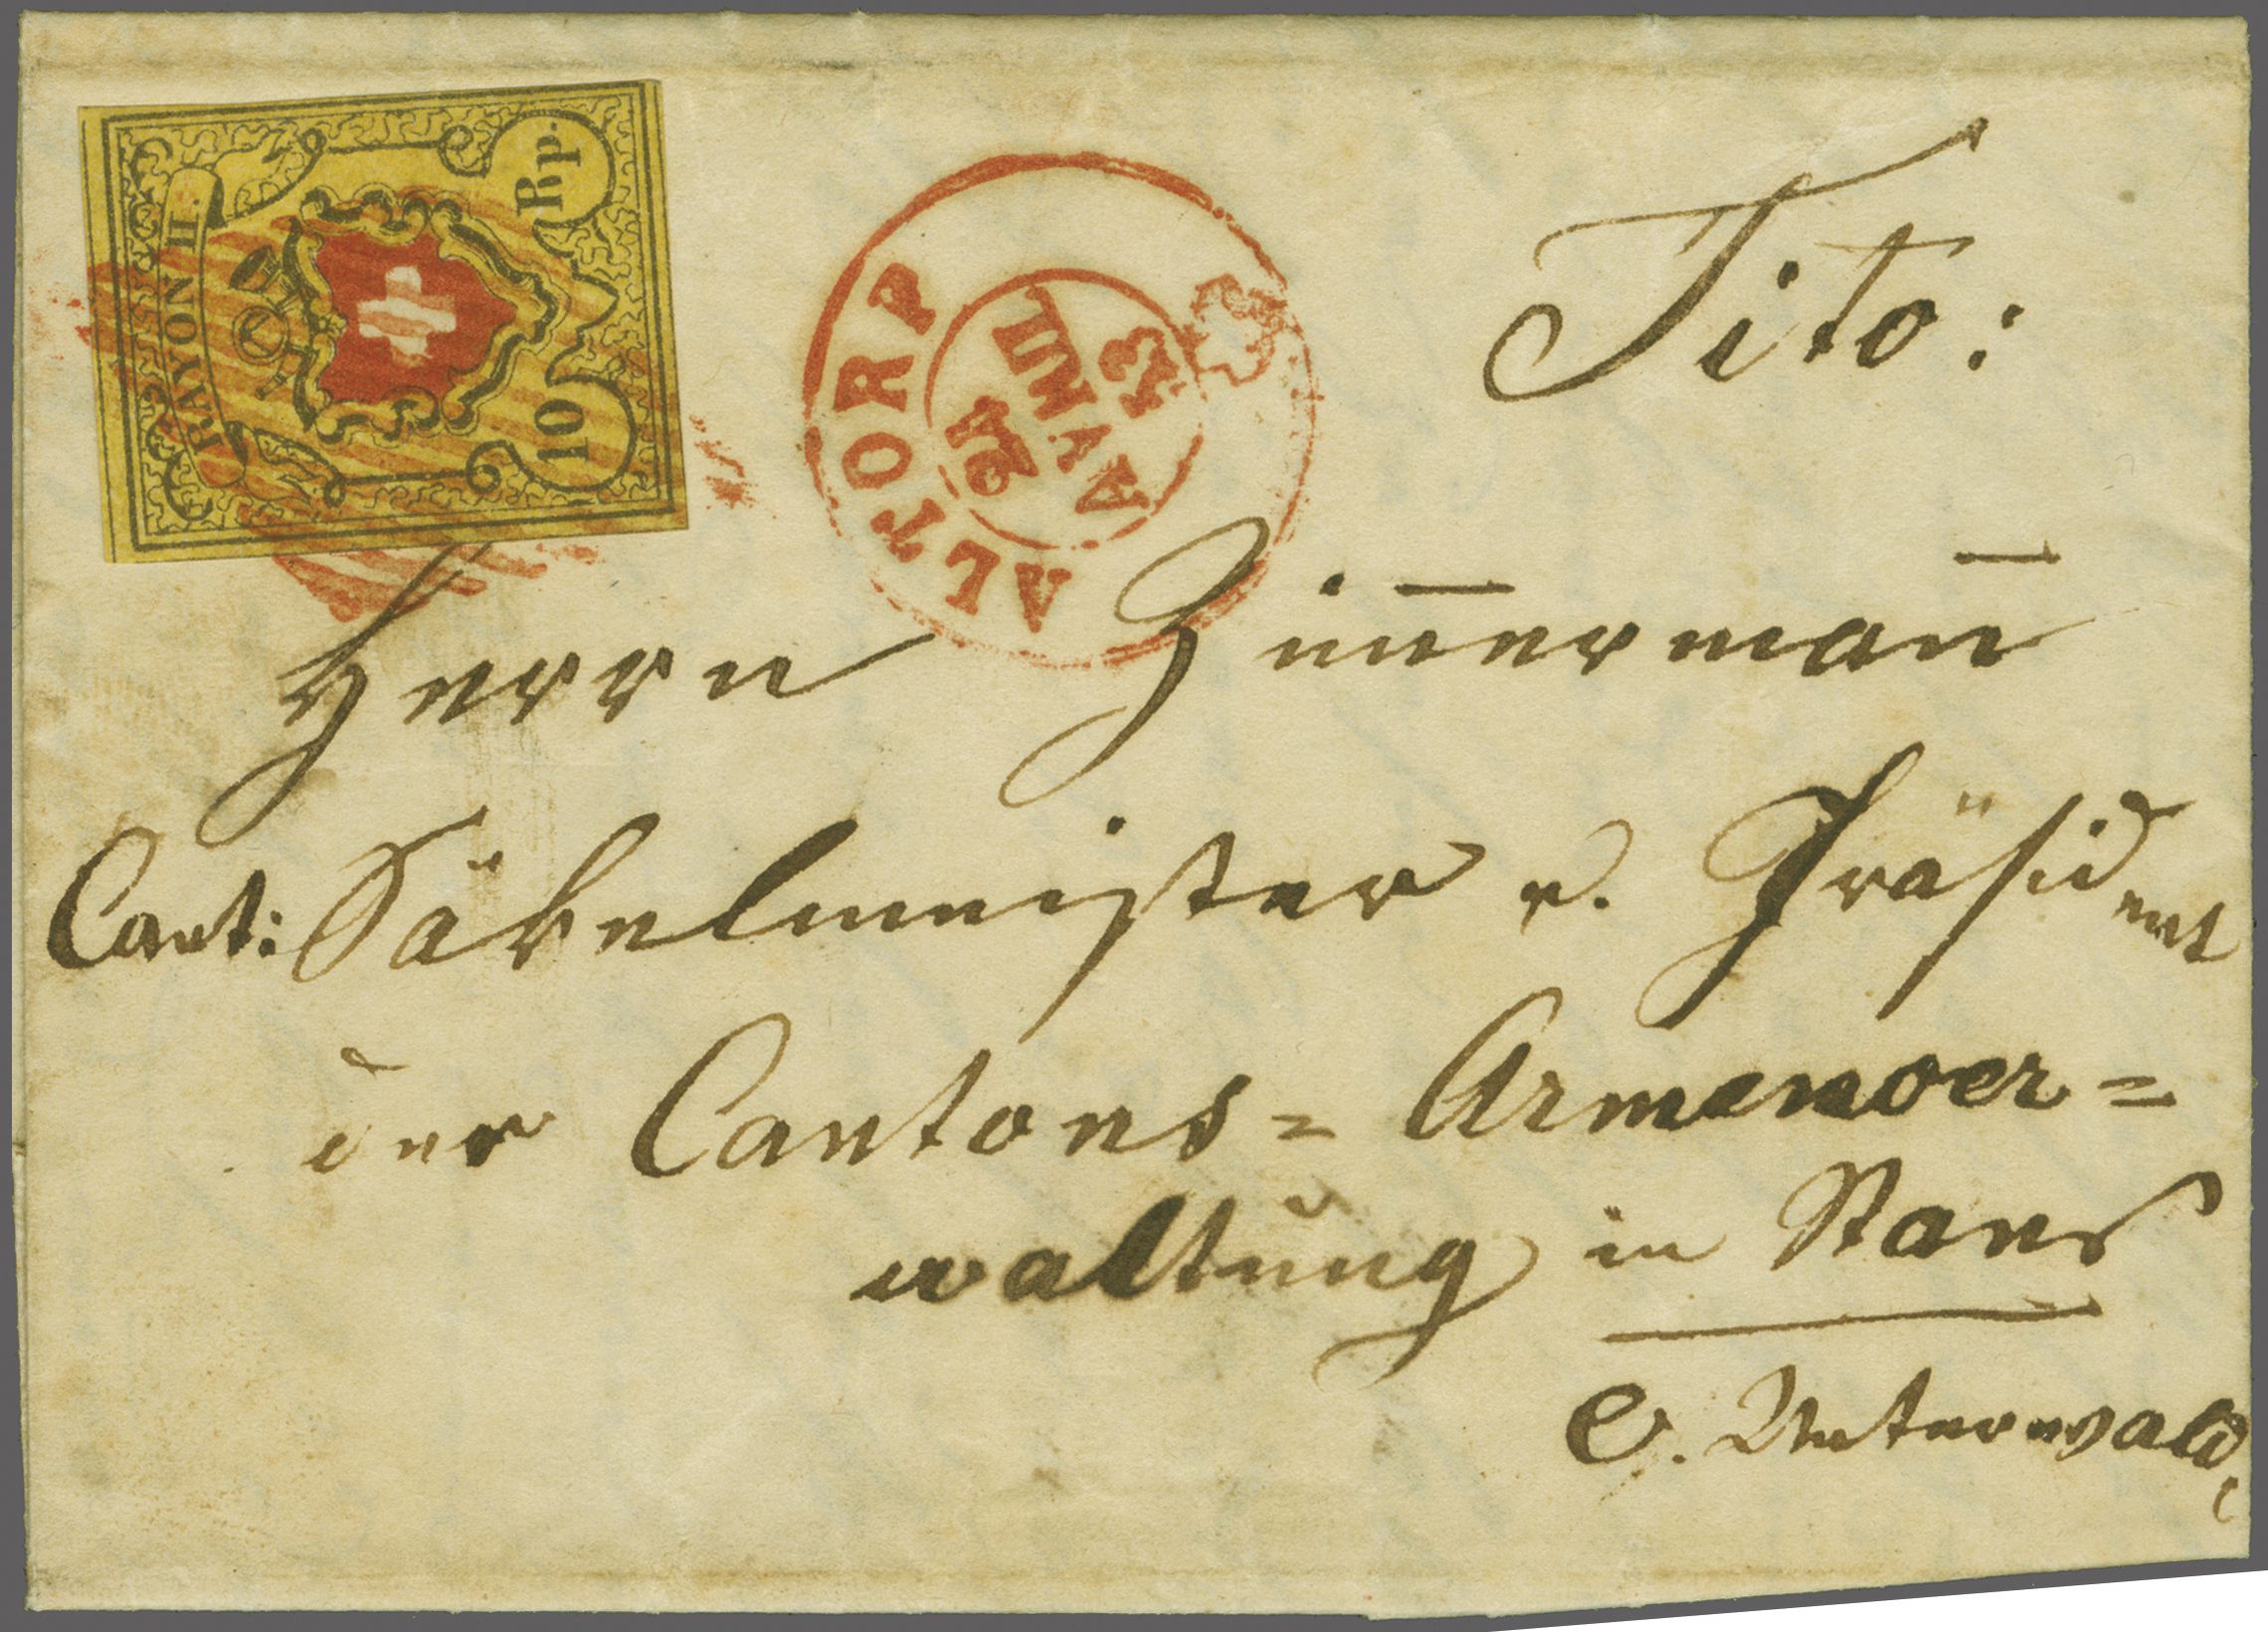 RAYON II.
10 Rp.
ALTORF
24
AVRIL
A 53
Tito:
Herrn Zim̄erman̄
Cant: Säkelmeister u. Präsident
der Cantons= Armenver=
waltung in Stans
C. Unterwald.